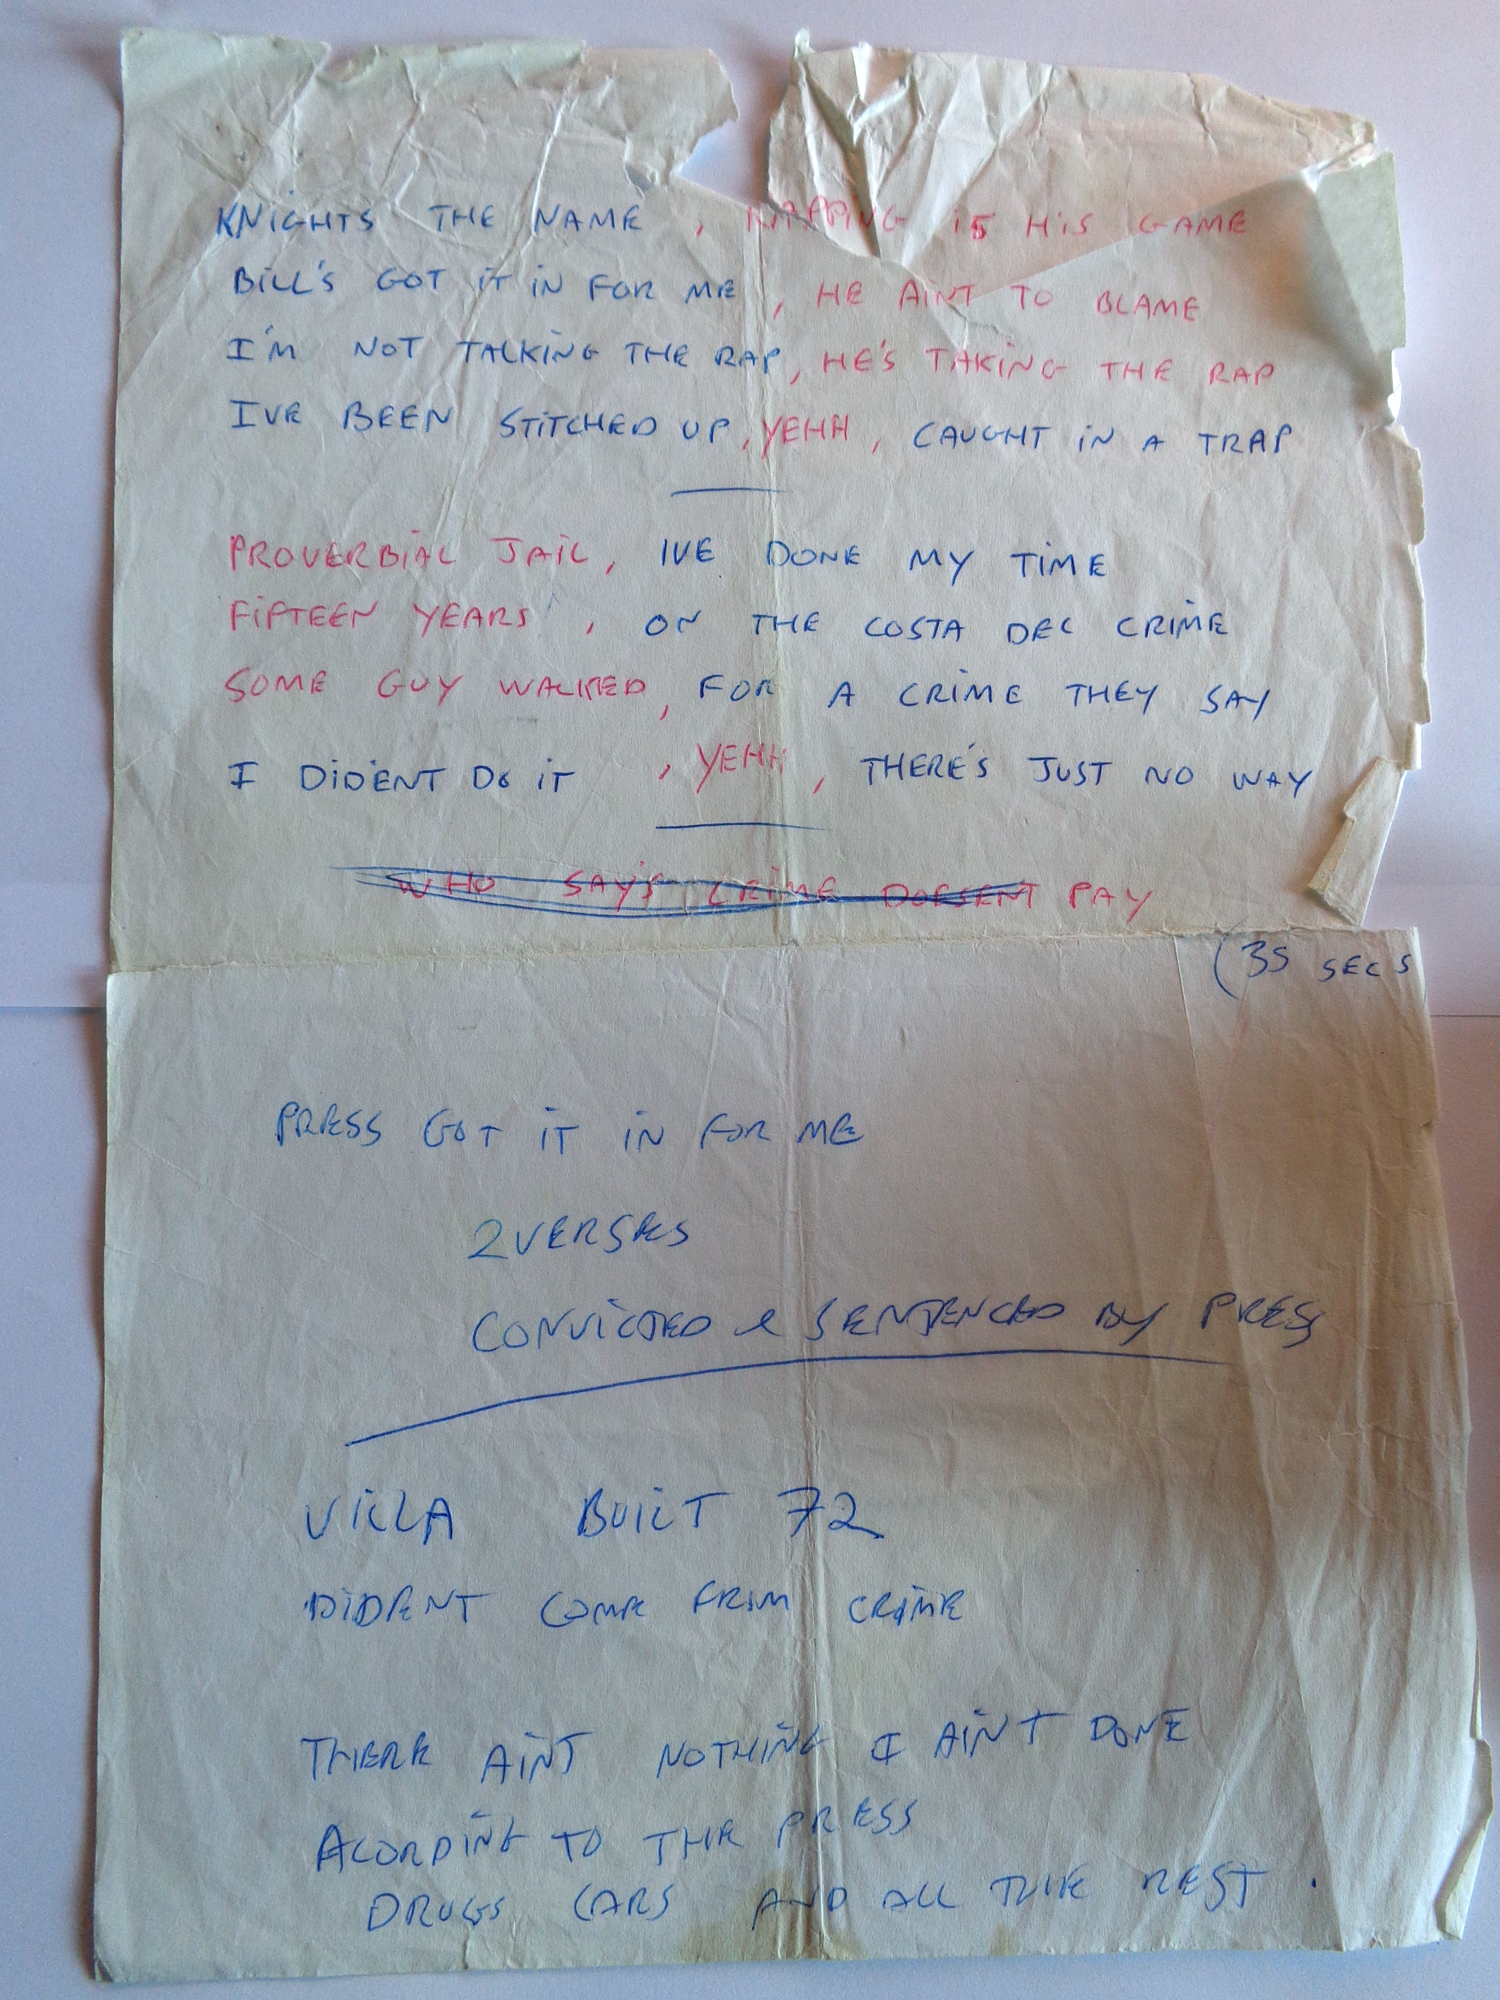 KNIGHTS THE NAME , RAPPING IS HIS GAME
BILL'S GOT IT IN FOR ME , HE AINT TO BLAME
I'M NOT TALKING THE RAP, HE'S TAKING THE RAP
IVE BEEN STITCHED UP, YEHH, CAUGHT IN A TRAP
PROVERBIAL JAIL, IVE DONE MY TIME
FIFTEEN YEARS , ON THE COSTA DEL CRIME
SOME GUY WALKED, FOR A CRIME THEY SAY
I DIDENT DO IT , YEHH , THERE'S JUST NO WAY
WHO SAYS CRIME DOESENT PAY
(35 SECS
PRESS GOT IT IN FOR ME
2 VERSES
CONVICTED & SENTENCED BY PRESS
VILLA BUILT 72
DIDENT COME FRIM CRIME
THERE AINT NOTHING I AINT DONE
ACORDING TO THE PRESS
DRUGS CARS AND ALL THE REST .